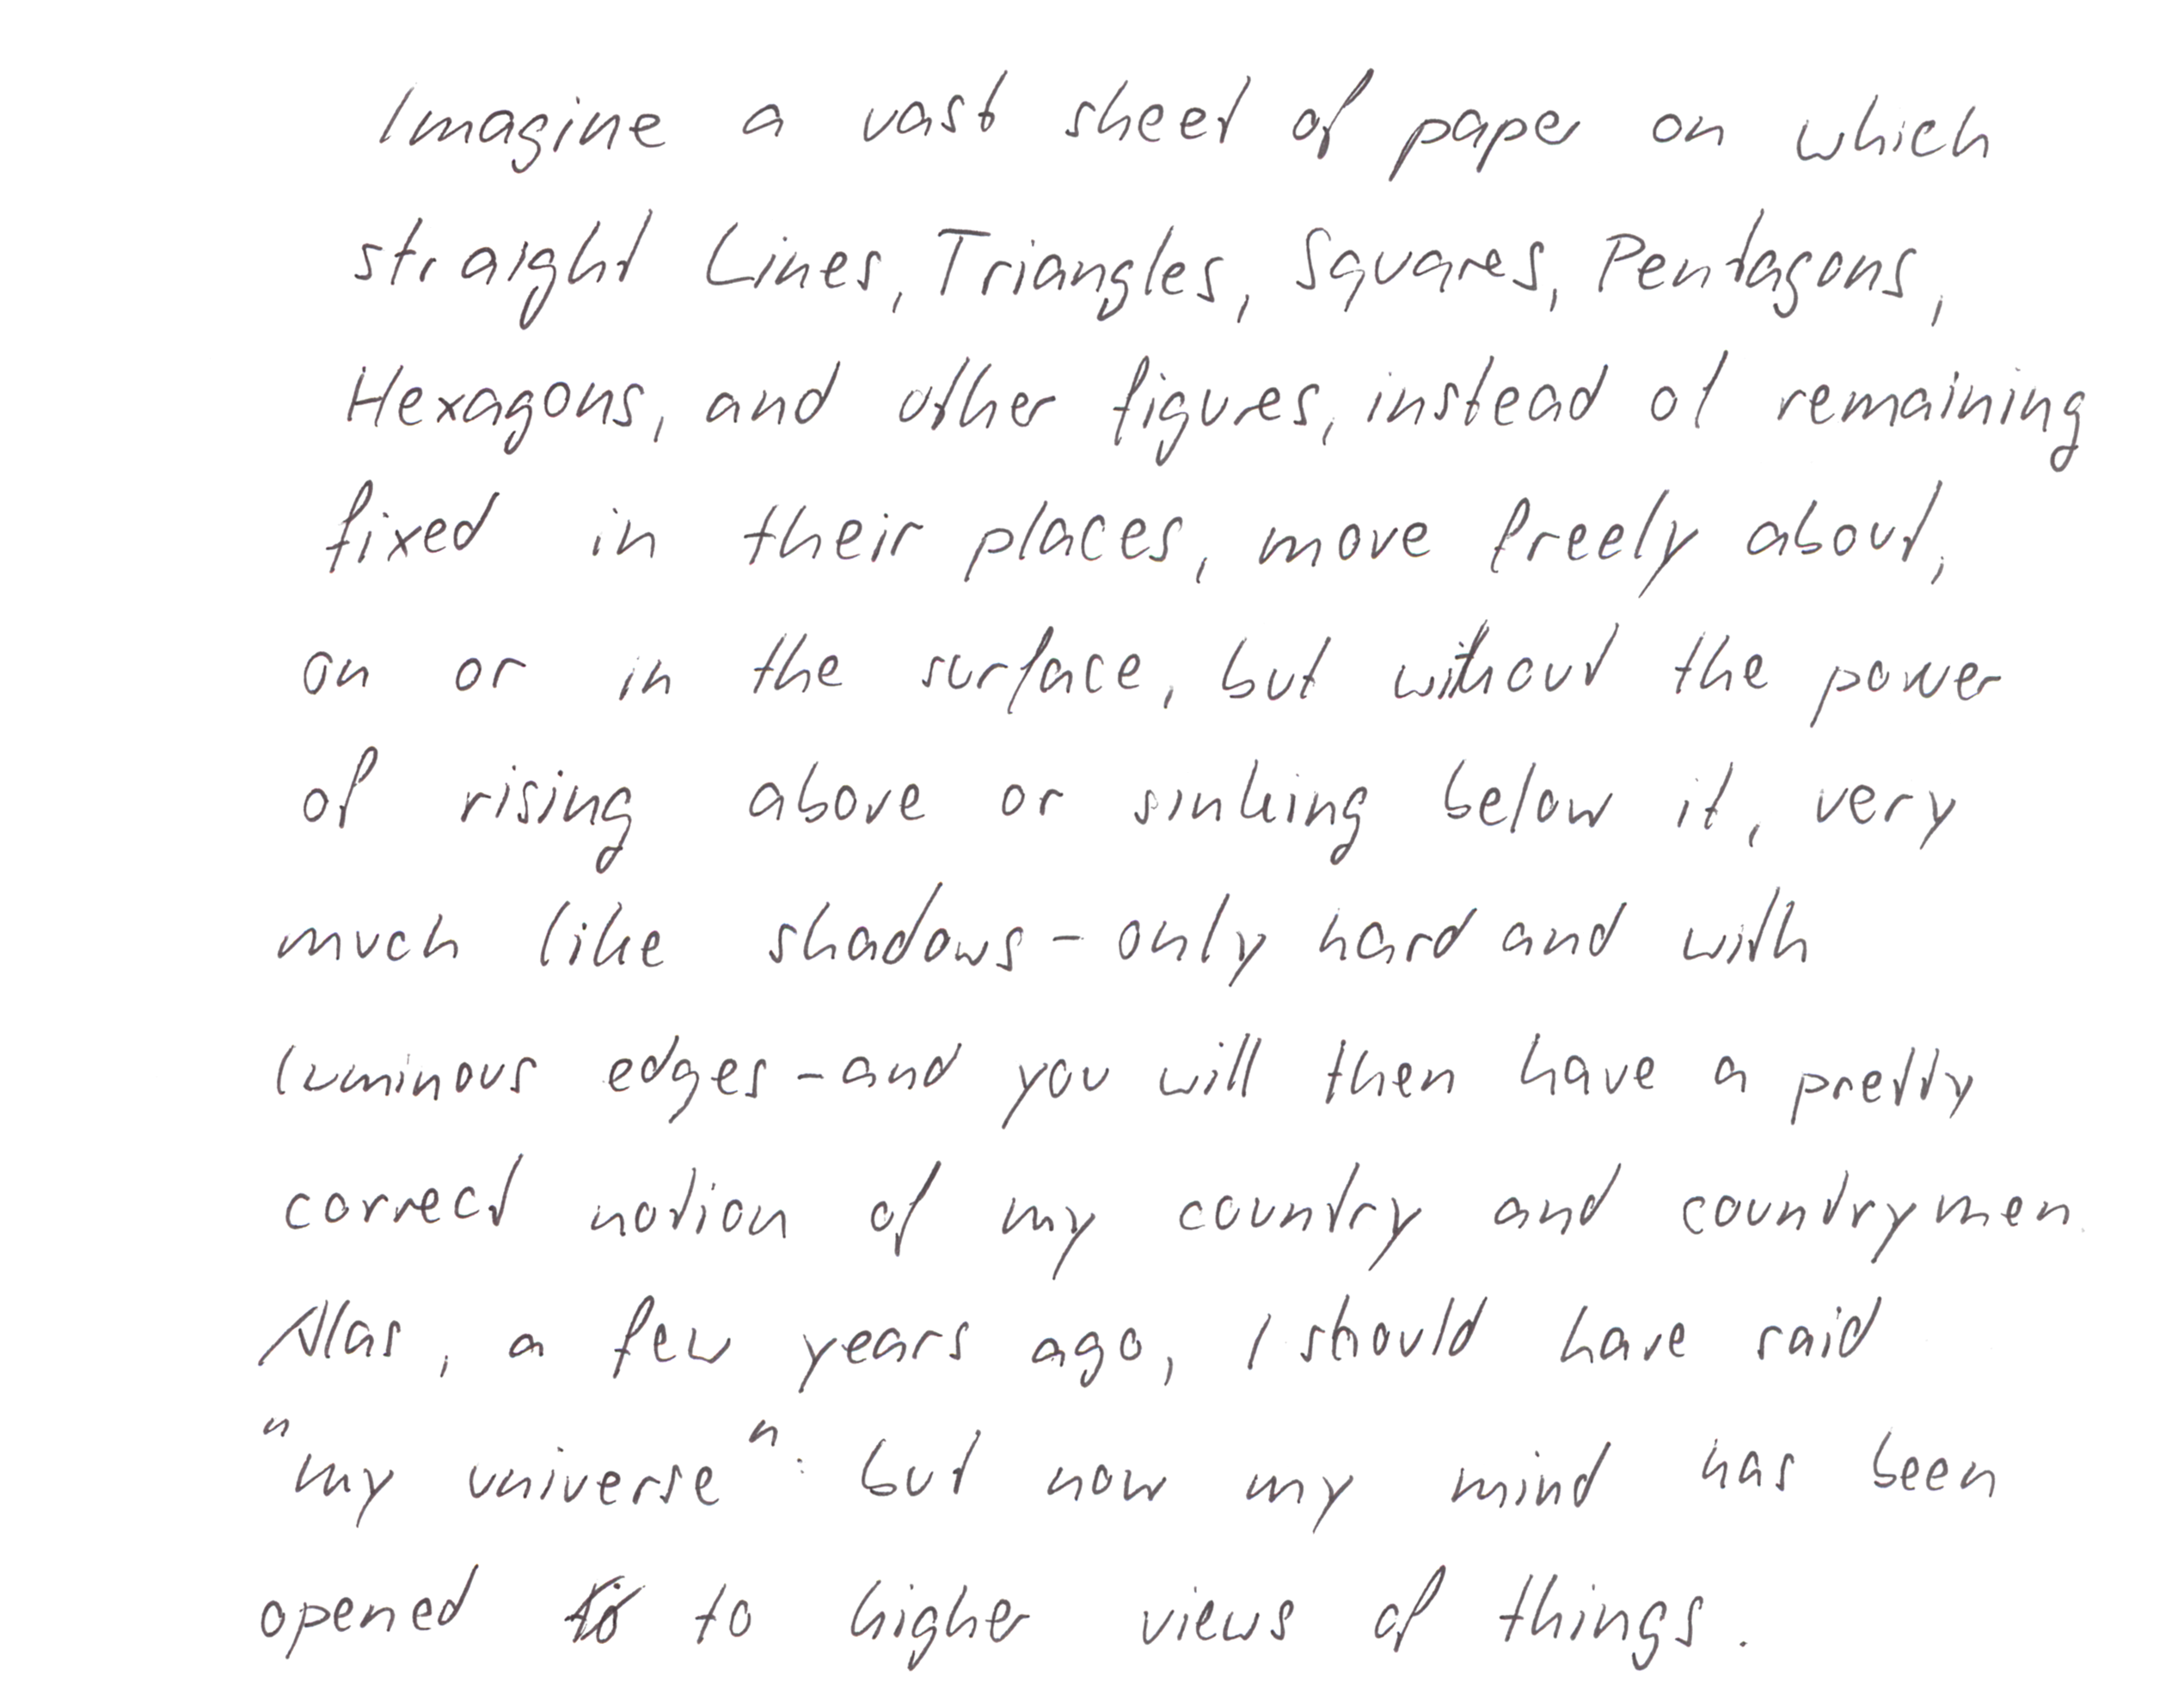 Imagine a vast sheet of paper on which
straight Lines, Triangles, Squares, Pentagons,
Hexagons, and other figures, instead of remaining
fixed in their places, move freely about,
on or in the surface, but without the power
of rising above or sinking below it, very
much like shadows - only hard and with
luminous edges - and you will then have a pretty
correct notion of my country and countrymen.
Alas, a few years ago, I should have said
"my universe": but now my mind has been
opened to higher views of things.